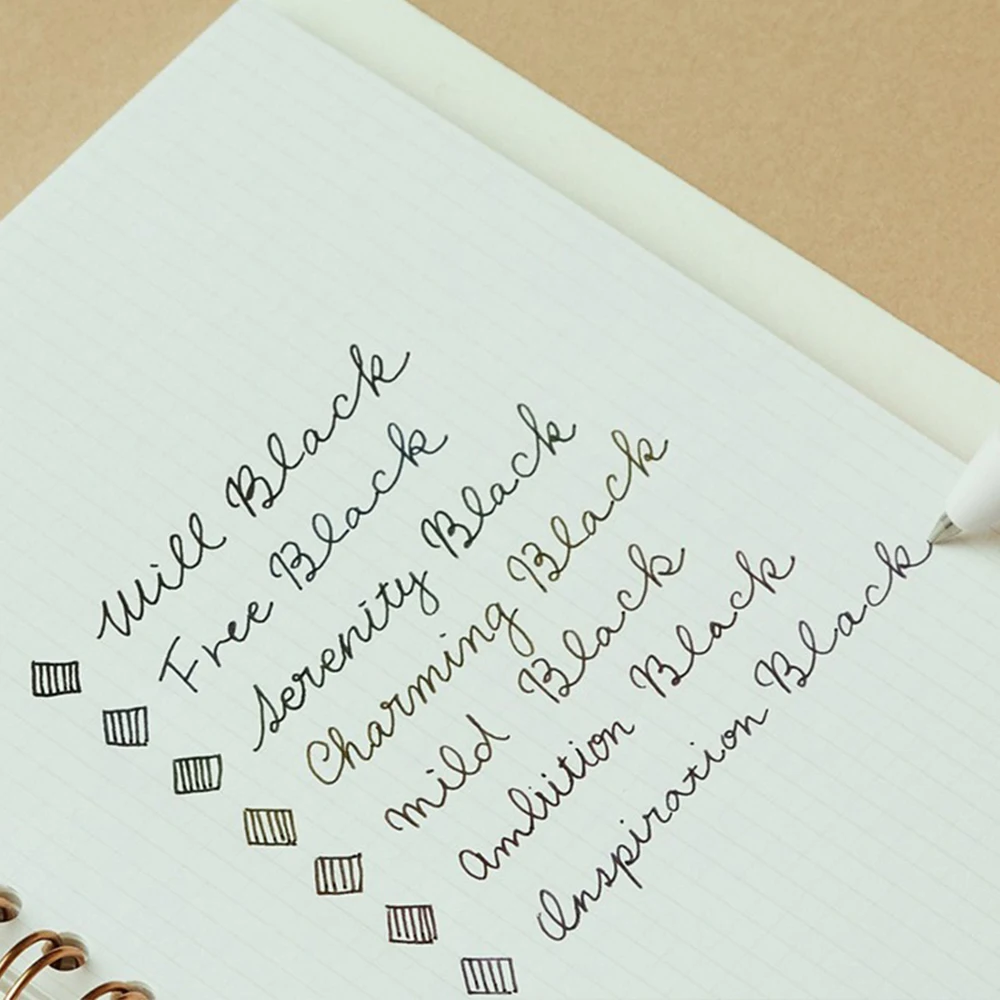 Will Black
Free Black
Serenity Black
Charming Black
Mild Black
Ambition Black
Inspiration Black